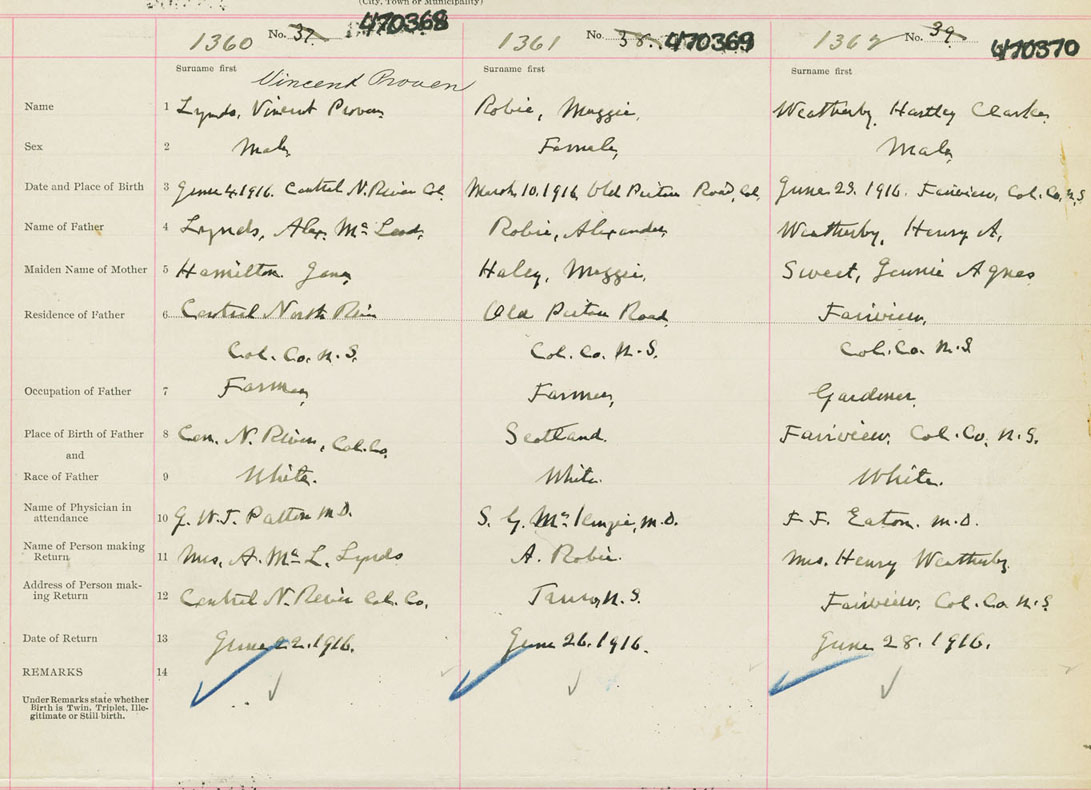 (City, Town or Municipality)
1360 No. 37. 470368 1361 No. 38. 470369 1362 No. 39. 470370
Surname first Vincent Proven Surname first Surname first
Name 1 Lynds, Vincent Proven Robie, Maggie, Weatherby, Hartley Clarke,
Sex 2 Male, Female, Male,
Date and Place of Birth 3 June 4, 1916. Central N. River Col. March 10, 1916, Old Pictou Road, Col. June 23. 1916. Fairview, Col. Co. N.S
Name of Father 4 Lynds, Alex. Mc Leod, Robie, Alexander, Weatherby, Henry A,
Maiden Name of Mother 5 Hamilton Haley, Maggie, Sweet, Jennie Agnes
Residence of Father 6 Central North River Old Pictou Road, Fairview,
Col. Co. N.S. Col. Co. N.S. Col. Co. N.S
Occupation of Father 7 Farmer, Farmer, Gardener,
Place of Birth of Father 8 Cen. N. River, Col. Co, Scotland. Fairview, Col. Co, N.S.
and
Race of Father 9 White. White. White.
Name of Physician in
attendance 10 Patton M.D. Mc Kenzie, M.D. F. F. Eaton. M.D.
Name of Person making
Return 11 Mrs. A. Mc L. Lynds A. Robie. Mrs. Henry Weatherby,
Address of Person mak-
ing Return 12 Central N. River Col. Co, Truro, N.S. Fairview, Col. Co N.S
Date of Return 13 June 22. 1916. June 26. 1916. June 28. 1916.
REMARKS 14
Under Remarks state whether
Birth is Twin, Triplet, Ille-
gitimate or Still birth.